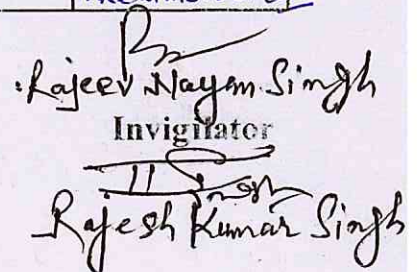 Rajeev Nayan Singh
Invigilator
Rajesh Kumar Singh